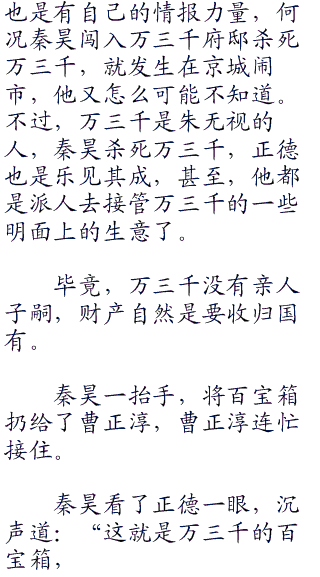 也是有自己的情报力量，何
况秦昊闯入万三千府邸杀死
万三千，就发生在京城闹
市，他又怎么可能不知道。
不过，万三千是朱无视的
人，秦昊杀死万三千，正德
也是乐见其成，甚至，他都
是派人去接管万三千的一些
明面上的生意了。
毕竟，万三千没有亲人
子嗣，财产自然是要收归国
有。
秦昊一抬手，将百宝箱
扔给了曹正淳，曹正淳连忙
接住。
秦昊看了正德一眼，沉
声道：“这就是万三千的百
宝箱，